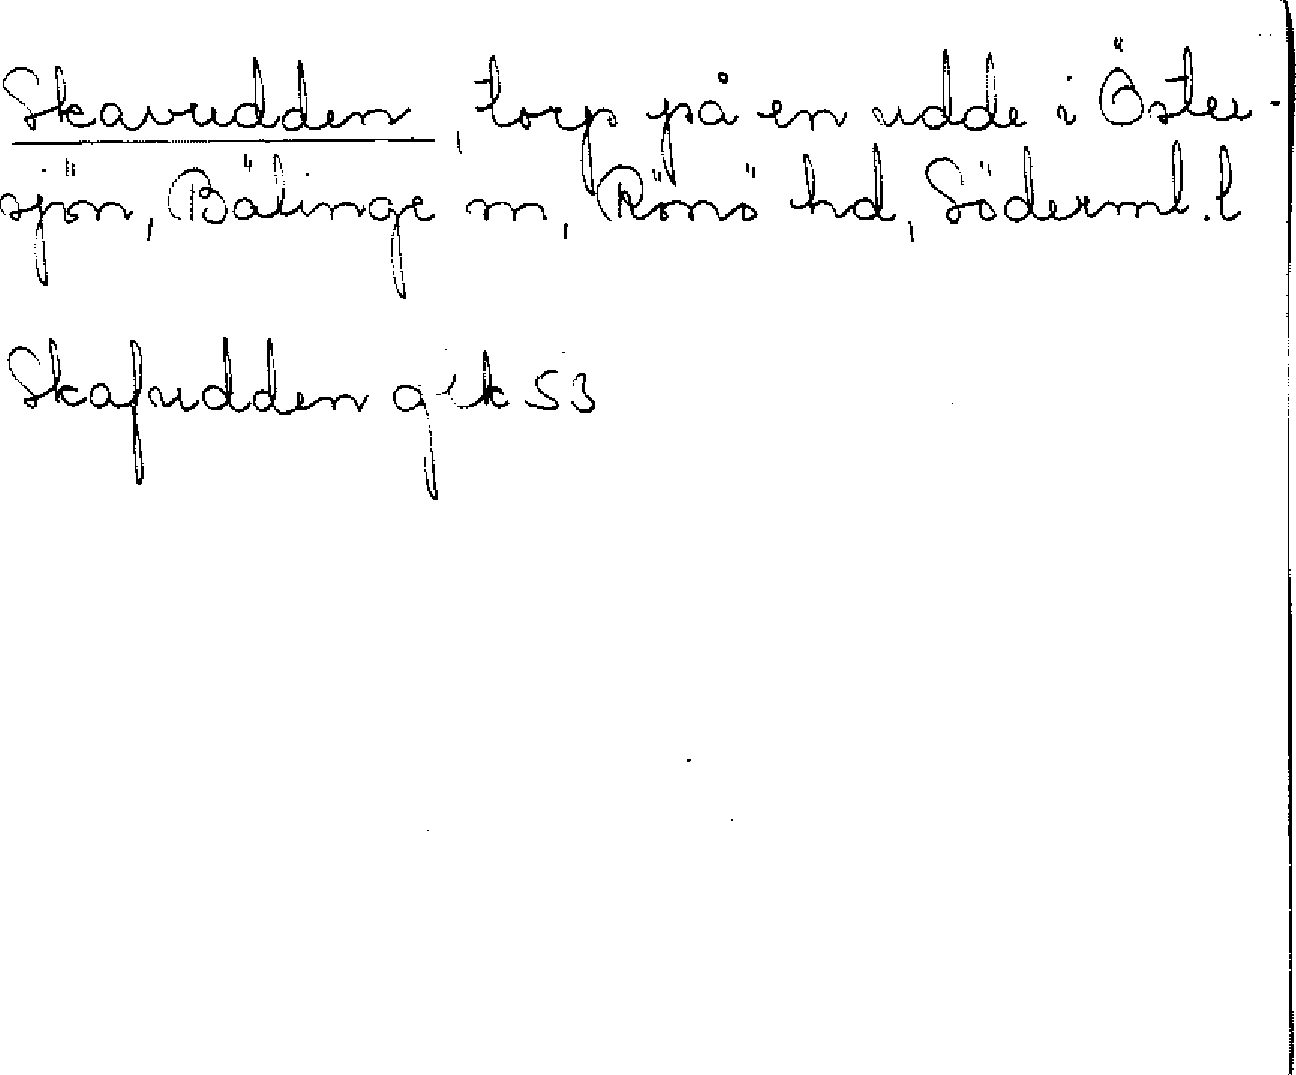 Skavudden, torp på en udde i Öster-
sjön, Bälinge sn, Rönö hd, Söderml. l
Skafudden gek 53